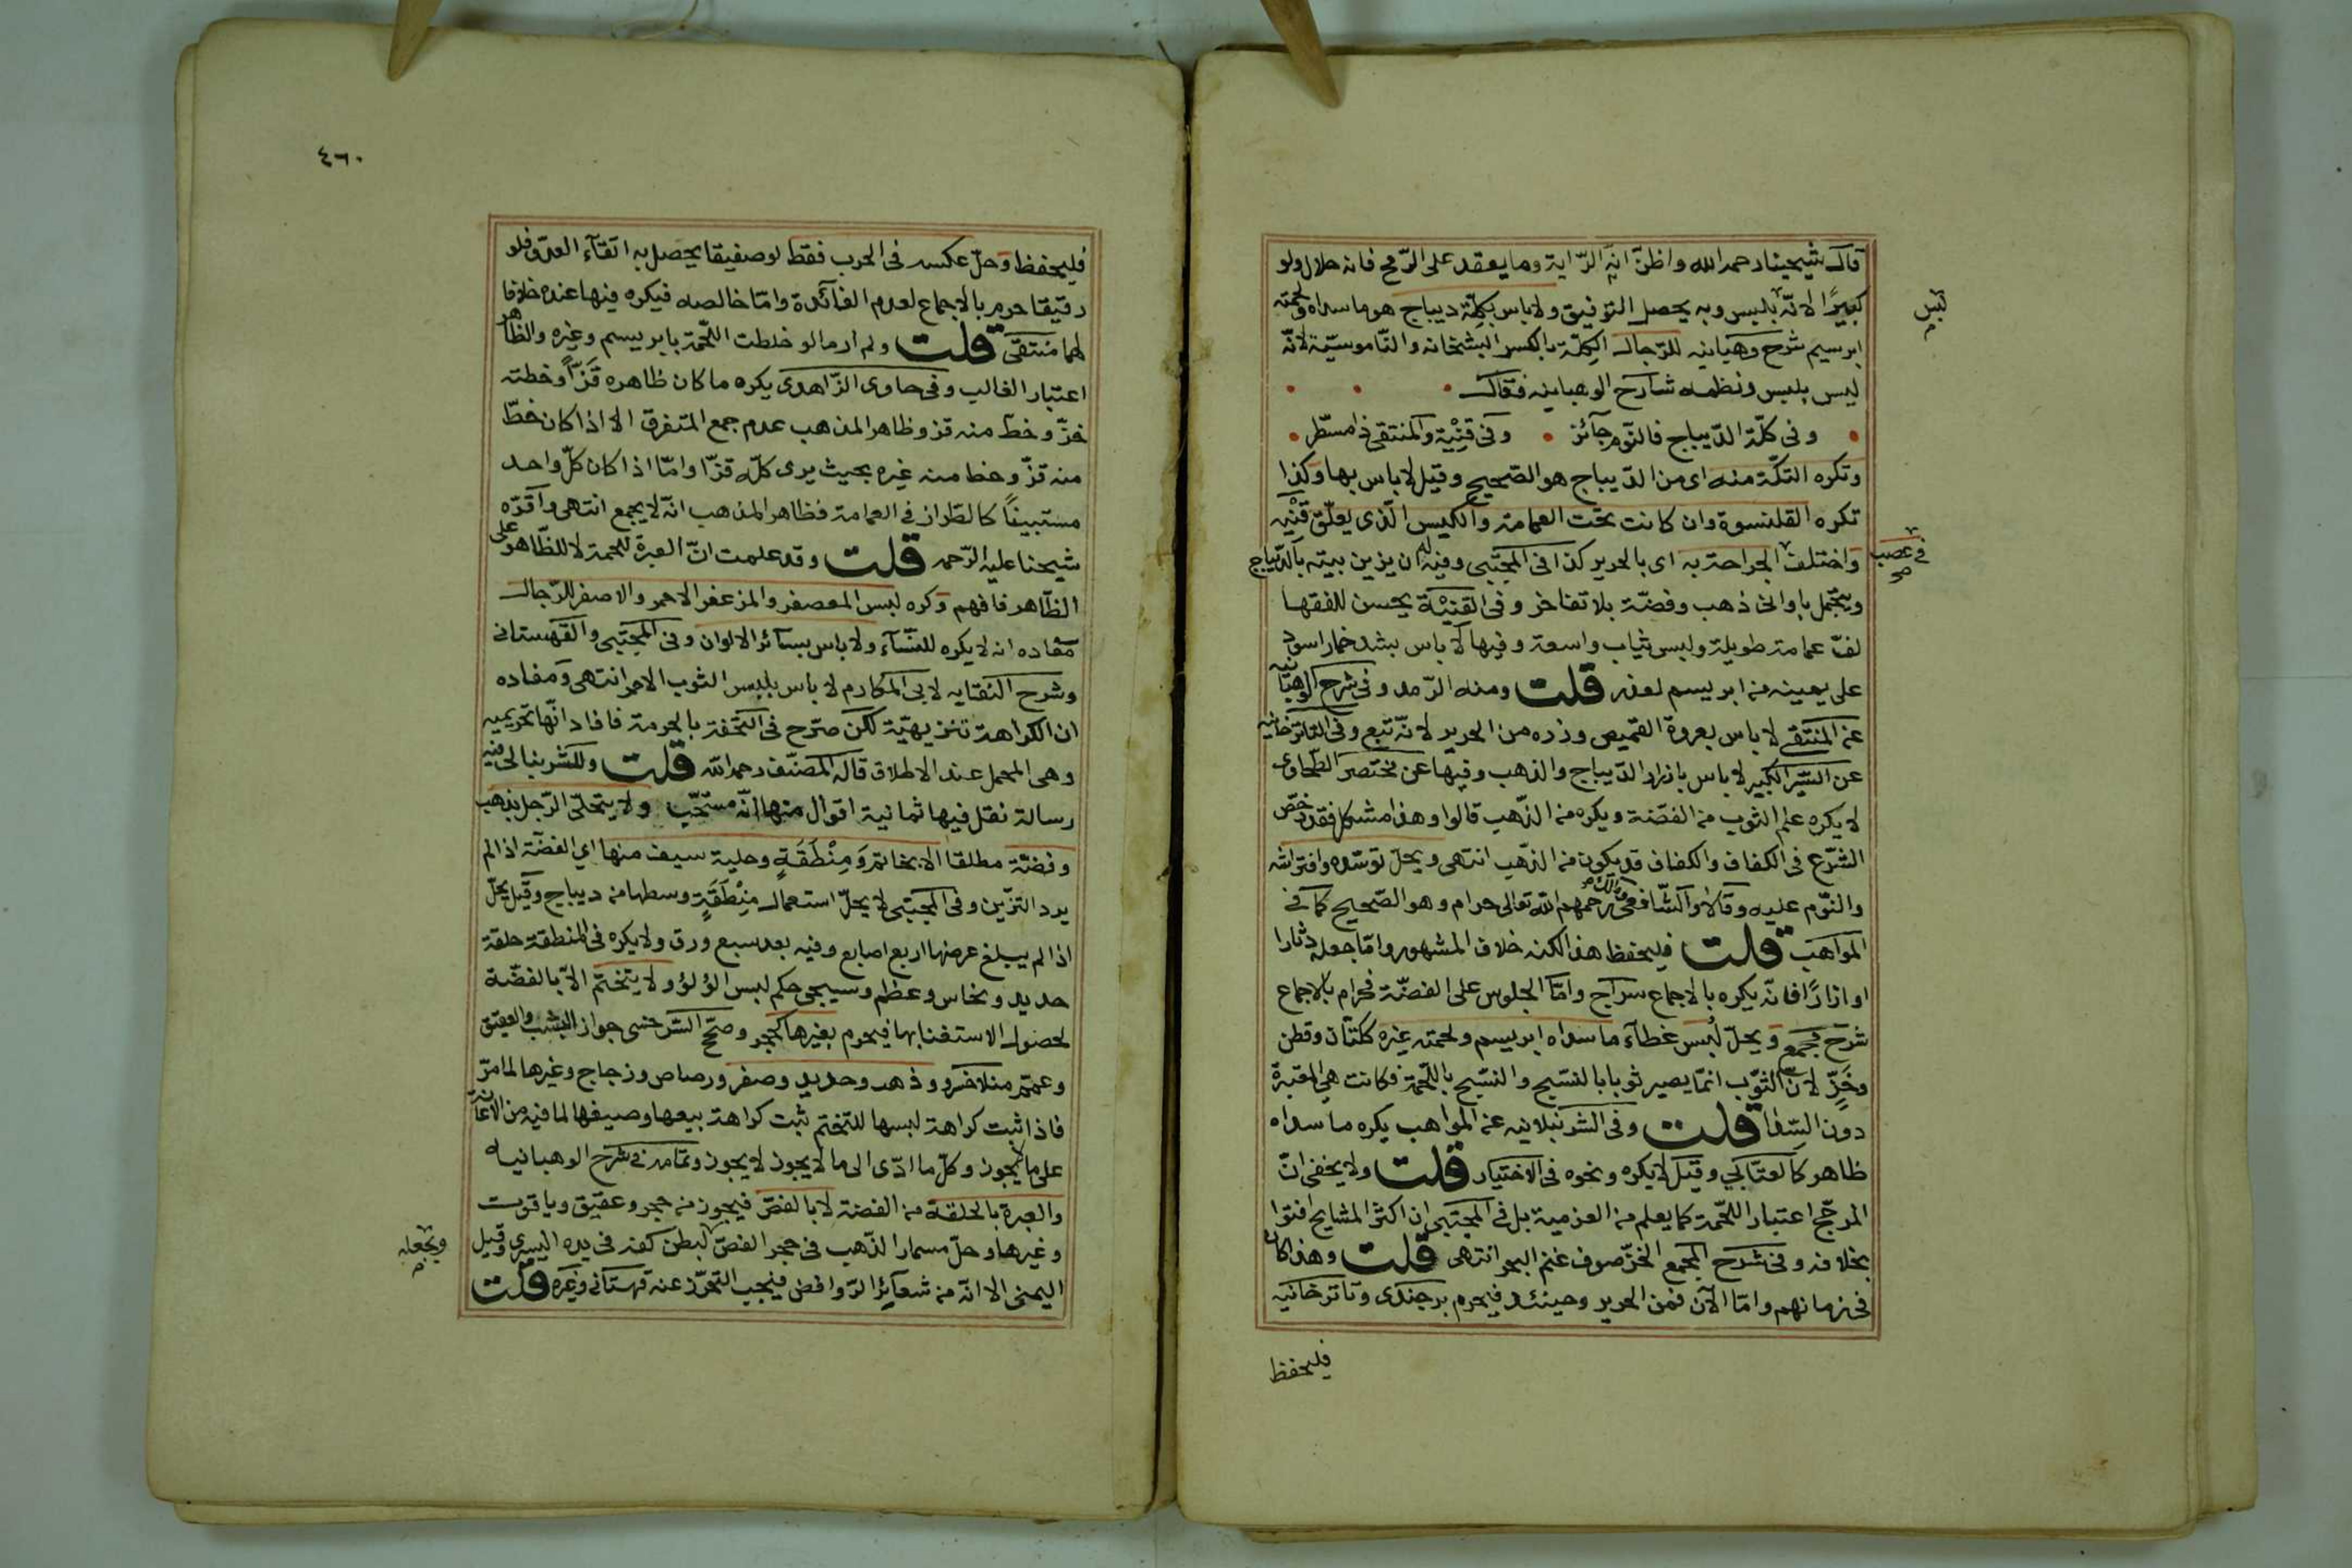 قال شيخنا رحمه الله واظنّ انّه الرّاية وما يعقد على الرّمح فانه حلال ولو
كبيرًا لانّه ليس بلبس وبه يحصل التوفيق ولا باس بكِلّة ديباج هو ما سداه ولحمته
ابرسيم شرح وهبانيه للرّجال الكِلّة بالكسر البشخانه والنّاموسيّة لانّه
ليس بلبس ونظمه شارح الوهبانيه فقال
وفى كلّة الدّيباج فالنّوم جآئز وفى قِنْيةٍ والمنتقى ذا مسطّر
وتكره التكّة منه اى من الدّيباج هو الصّحيح وقيل لا باس بها وكذا
تكره القلنسوة وان كانت تحت العمامة والكيس الّذى يعلّق قنْيه
واختلف فى عصب الجراحة به اى بالحرير كذا فى المجتبى وفيه له ان يزين بيته بالدّيباج
ويتجمل باوانى ذهب وفضّة بلا تفاخر وفى القنْيَة يحسن للفقها
لفّ عمامة طويلة ولبس ثياب واسعة وفيها لا باس بشد خمار اسود
على يمينه من ابريسم لعذر قلت ومنه الرّمد وفى شرح الوهبانيه
عن المنتقى لا باس بعروة القميص وزره من الحرير لانّه تبع وفى التتارخانيه
عن السّير الكبير لا باس بازرار الدّيباج والذهب وفيها عن مختصر الطّحاوى
لا يكره علم الثوب من الفضّة ويكره من الذّهب قالوا وهذا مشكل فقد رخّص
الشّرع فى الكفاف والكفاف قد يكون من الذّهب انتهى ويحلّ توسّده وافتراشه
والنّوم عليه وقالا والشّافعى ومالك رحمهم الله تعالى حرام وهو الصّحيح كما فى
المواهب قلت فليحفظ هذا لكنه خلاف المشهور وامّا جعله دثارا
او ازارًا فانّه يكره بالاجماع سراج وامّا الجلوس على الفضّة فحرام بالاجماع
شرح مجمع ويحلّ لُبس غطآء ما سداه ابريسم ولحمته غيره ككتّان وقطن
وخَزٍّ لانّ الثوّب انمّا يصير ثوبا بالنسّيج والنسّيج باللّحمة فكانت هى المعتبرة
دون السّدا قلت وفى الشرنبلانيه عن المواهب يكره ما سداه
ظاهر كالعتابى وقيل لا يكره ونحوه فى الاختيار قلت ولا يخفى انّ
المرجّح اعتبار اللّحمة كما يعلم من العزمية بل فى المجتبى ان اكثر المشايخ افتوا
بخلافه وفى شرح المجمع الخزّ صوف غنم البحر انتهى قلت وهذا كان
فى زمانهم وامّا الآن فمن الحرير وحينئذ فيحرم برجندى وتاترخانيه
فليحفظ
٤٦٠
فليحفظ وحلّ عكسه فى الحرب فقط لو صفيقا يحصل به اتقآء العدوّ فلو
رقيقا حرم بالاجماع لعدم الفآئدة وامّا خالصه فيكره فيها عنده خلافا
لهما منتقىً قلت ولم ار ما لو خلطت اللّحمة بابريسم وغيره والظاهر
اعتبار الغالب وفى حاوى الزّاهدى يكره ما كان ظاهره قَزّاً وخطّه
خزّ وخطّ منه قز وظاهر المذهب عدم جمع المتفرق الا اذا كان خطّ
منه قزّ وخط منه غيره بحيث يرى كلّه قزّا وامّا اذا كان كلّ واحد
مستبيناً كالطّراز فى العمامة فظاهر المذهب انّه لا يجمع انتهى واقرّه
شيخنا عليه الرّحمه قلت وقد علمت انّ العبرة للحمة لا للظّاهر على
الظّاهر فافهم وكره لبس المعصفر والمزعفر الاحمر والاصفر للرّجال
مفاده انه لا يكره للنسّآء ولا باس بسآئر الالوان وفى المجتبى والقهستانى
وشرح النقايه لابى المكارم لا باس بلبس الثوب الاحمر انتهى ومفاده
ان الكراهة تنزيهيّة لكن صرّح فى التحفة بالحرمة فافاد انّها تحريميه
وهى المحمل عند الاطلاق قاله المصنّف رحمه الله قلت وللشرنبالى فيه
رسالة نقل فيها ثمانية اقوال منها انّه مستحبّ ولا يتحلّى الرّجل بذهب
وفضّة مطلقا الا بخاتم وَمِنْطَقَةٍ وحلية سيف منها اي الفضّة اذا لم
يرد التزّين وفى المجتبى لا يحلّ استعمال مِنْطَقَةٍ وسطها من ديباج وقيل يحلّ
اذا لم يبلغ عرضها اربع اصابع وفيه بعد سبع ورق ولا يكره فى المنطقة حلقة
حديد ونحاس وعظم وسيجى حكم لبس الؤلؤ ولا يتختم الاّ بالفضّة
لحصول الاستغنا بها فيحرم بغيرها كحجر وصحّح السّرخسى جواز اليشب والعقيق
وعمّم منلا خسرو وذهب وحديد وصفر ورصاص وزجاج وغيرها لما مرّ
فاذا ثبت كراهة لبسها للتختم ثبت كراهة بيعها وصيغها لما فيه من الاعانة
على ما لا يجوز وكلّ ما ادّى الى ما لا يجوز لا يجوز وتمامه فى شرح الوهبانيه
والعبرة بالحلقة من الفضة لا بالفصّ فيجوز من حجر وعقيق وياقوت
وغيرها وحلّ مسمار الذّهب فى حجر الفصّ ويجعله لبطن كفه فى يده اليسرى وقيل
اليمنى الا انّه من شعآئر الرّوافض فيجب التحرّز عنه قهستانى وغيره قلت